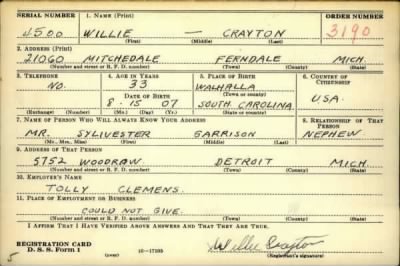 SERIAL NUMBER 1. NAME (Print) ORDER NUMBER
J500 WILLIE — CRAYTON 3190
(First) (Middle) (Last)
2. ADDRESS (Print)
21060 MITCHEDALE FERNDALE MICH.
(Number and street or R. F. D. number) (Town) (County) (State)
3. TELEPHONE 4. AGE IN YEARS 5. PLACE OF BIRTH 6. COUNTRY OF CITIZENSHIP
NO. 33 WALHALLA
DATE OF BIRTH (Town or county)
8-15 07 SOUTH CAROLINA U.S.A.
(Exchange) (Number) (Mo.) (Day) (Yr.) (State or country)
7. NAME OF PERSON WHO WILL ALWAYS KNOW YOUR ADDRESS 8. RELATIONSHIP OF THAT PERSON
MR. SYLIVESTER GARRISON NEPHEW
(Mr., Mrs., Miss) (First) (Middle) (Last)
9. ADDRESS OF THAT PERSON
5752 WOODRAW DETROIT MICH.
(Number and street or R. F. D. number) (Town) (County) (State)
10. EMPLOYER'S NAME
TOLLY CLEMENS.
11. PLACE OF EMPLOYMENT OR BUSINESS
COULD NOT GIVE.
(Number and street or R. F. D. number) (Town) (County) (State)
I AFFIRM THAT I HAVE VERIFIED ABOVE ANSWERS AND THAT THEY ARE TRUE.
REGISTRATION CARD
D. S. S. Form 1 (over) 16—17105 Willie Crayton
(Registrant's signature)
5